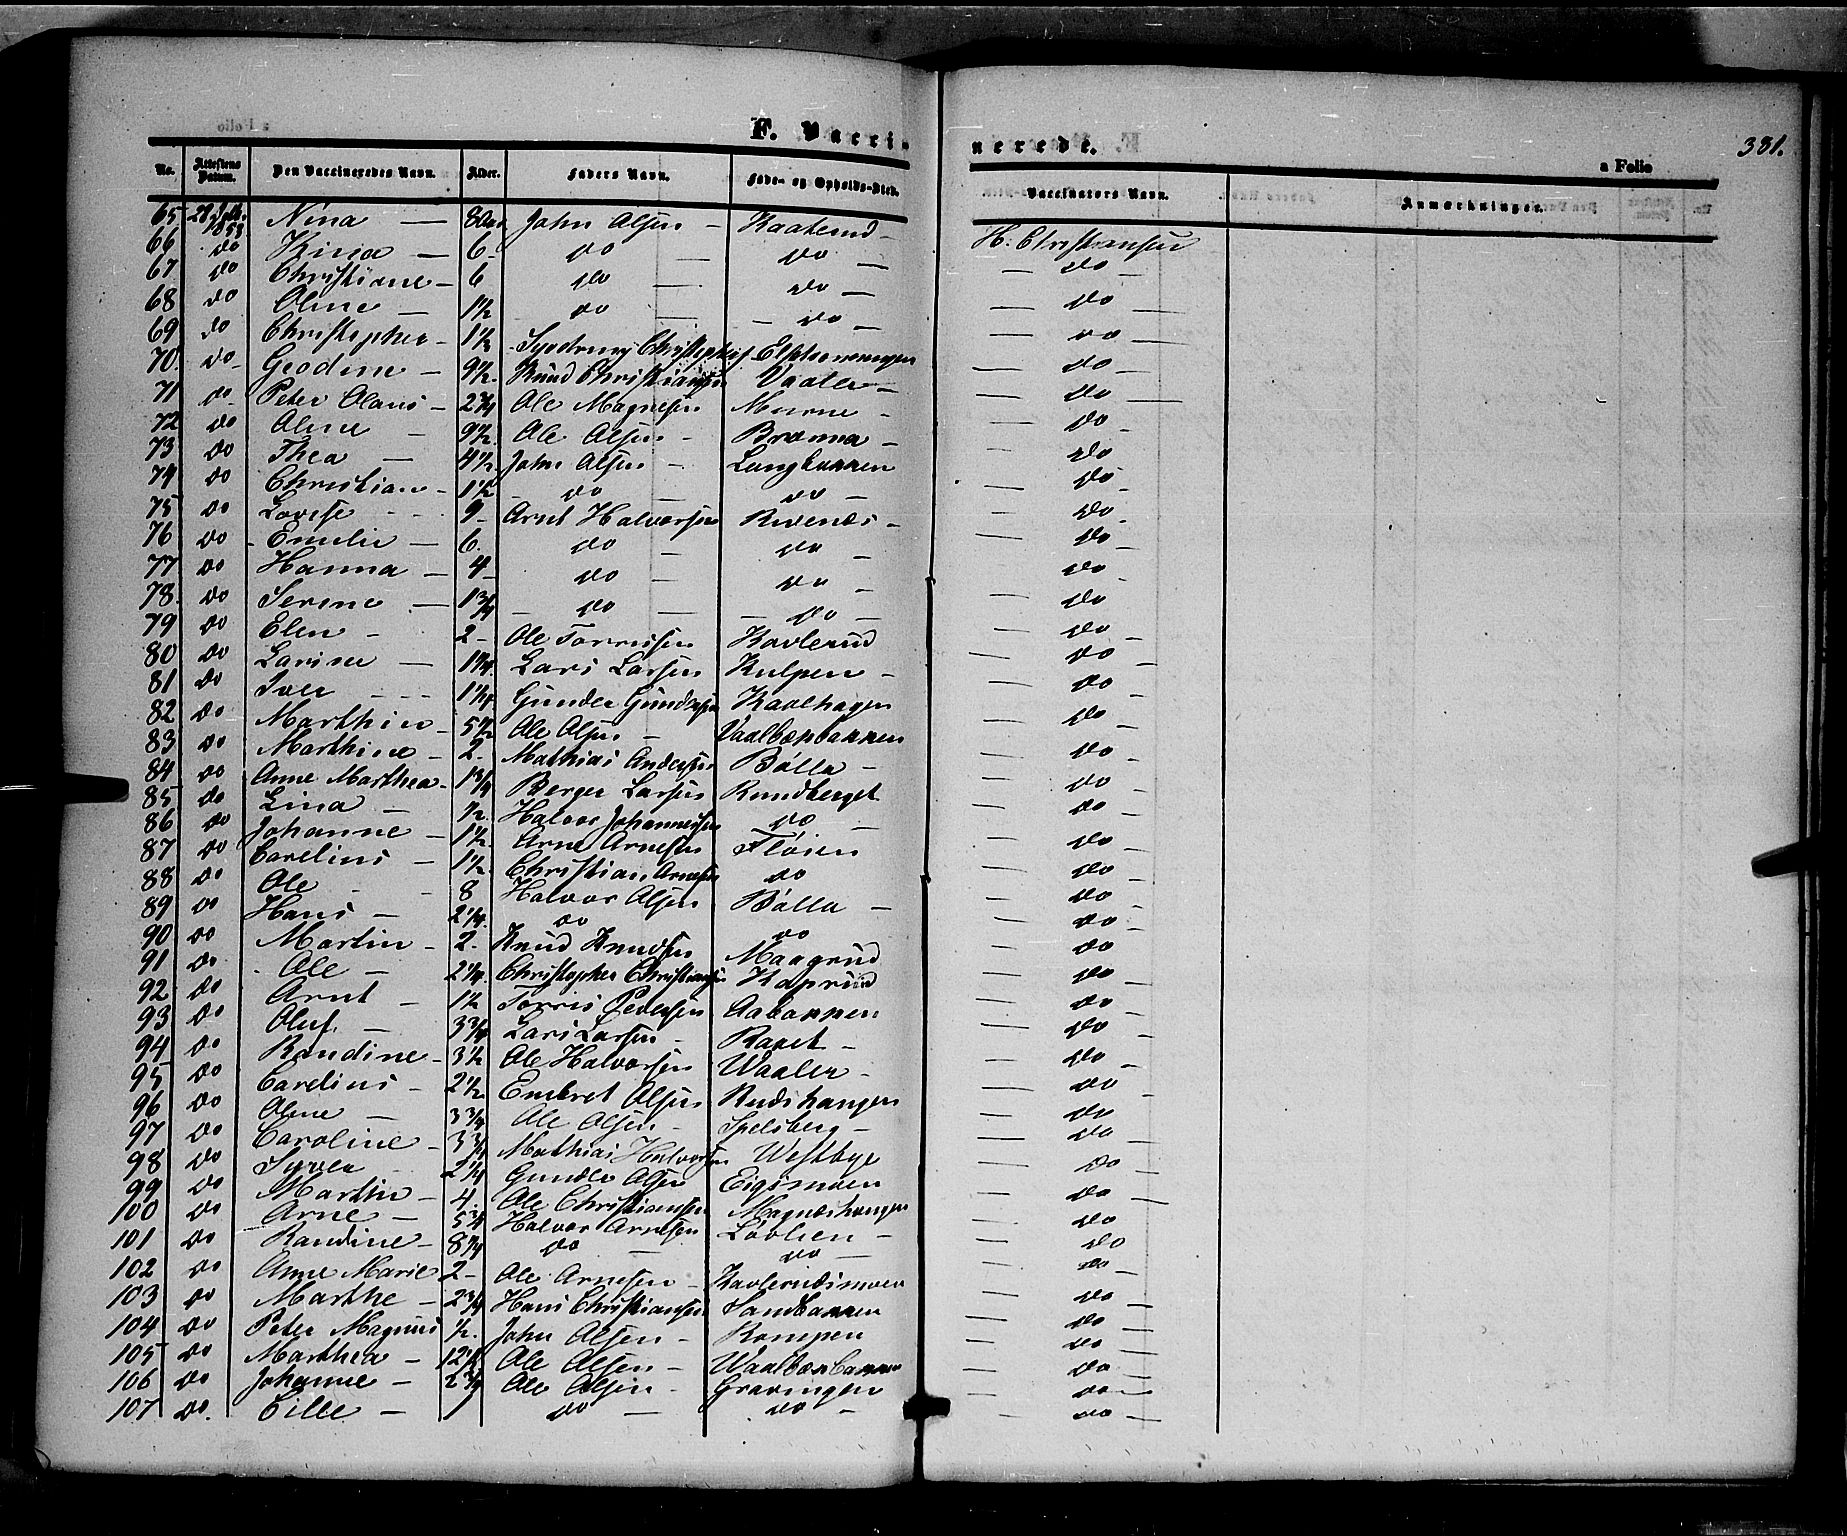 F. Vacci-
nerede.
381.
a Folio
No. Attestens Datum. Den Vaccineredes Navn. Alder. Faders Navn. Føde- og Opholds-Sted. Vaccinators Navn. Anmærkninger.
65 28 1853 Nina — 8 Aar John Olsen — Kaaterud — H. Christiansen
66 do Kina — 6 - do — do — — do —
67 do Christiane - 6 do — do — — do —
68 do Oline — 1½ do — — do — — do —
69 do Christopher - 1½ Christophers — do —
70. do - Geodine — 9½. Knud Christiansen Vaaler — — do —
71 do - Peter Olaus - 2¾ Ole Magnesen Murne - — do -
72 do Oline — 9½. Ole Olsen - Brænna — — do
73 do Thea — 4½ John Olsen — Langbakken — do -
74 do Christian - 1½ - do — do — — do -
75 do Lovise - - - 9 - Arnt Halvorsen Revenæs - — do —
76 do - Emilie — 6. do — do — — do
77 do Hanna — 4 - do — do - — do -
78. do Serine — 1¾ - do — — do — — do -
79 do Elen - 2 - Ole Torrissen Kavlerud — do —
80 do Larine — 1¼. Lars Larsen Kulpen — — do
81 do Iver - - - 1¼ Gunder Gundersen Kavlhagen — do -
82 do Marthin - 5½ Ole Olsen — Vaalbækbakken — do —
83 do Marthine - 2. Mathias Andersen Bølla — — do -
84 do Anne Marthea - 1¾ Berger Larsen Rundberget — do —
85 do Lina — ½. Halvor Johannessen do — — do —
86 do Johanne — 1½. Arne Arnesen Fløien — do
87 do Carelius — 1½. Christian Arnesen do — do -
88 do Ole - - 8 Halvor Olsen Bølla — — do -
89 do Hans — 2¼. do do — do
90 do Martin - 2. Knud Knudsen Maagrud — do —
91 do Ole — 2¼. Christopher Christiansen Kaprud — do
92 do Arnt — 1½ Torris Pedersen Aabakken — do —
93 do Oluf. — 3¾ Lars Larsen - Raaet — — do -
94 do Randine - 3½ Ole Halvorsen Vaaler - — do
95 do Carelius - 2½. Embret Olsen Rudshaugen — do
96 do Oline — 3¾ Ole Olsen - Spelsberg — — do —
97 do Caroline - 3¾ Mathias Halvorsen Westbye — do —
98 do Syver - 2¼ Gunder Olsen Eigismoen — do —
99 do Marthe - 4. Ole Christiansen Magneshaugen — do
100 do Arne — 5¼ Halvor Arnesen Løvlien — — do —
101 do Randine - 8¼ do — do — — do -
102 do Anne Marie 2 - Ole Arnesen - Kavlerudsmoen — do —
103 do Marthe - 2¾ Hans Christiansen Sandbakken — do —
104 do Peter Magnus ½. John Olsen - Kompen — do —
105 do Marthea - 12½ Ole Olsen — Vaalbækbakken — do —
106 do Johanne - 2¾ Ole Olsen - Gravingen — do —
107 do. Eille — 1 do — do — — do —